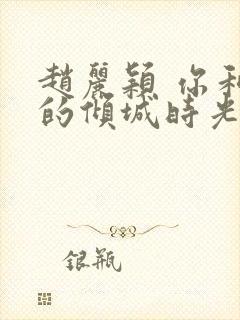 趙麗穎 你和
的傾城時光
銀瓶